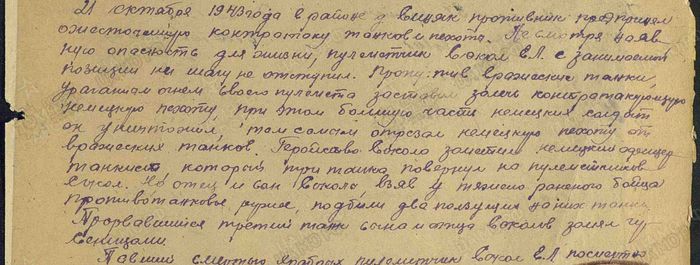 21 октября 1943 года в районе д. противник предпринял
ожесточенную контратаку танков и пехоты. Не смотря на явную
опасность для жизни, пулеметчик Вокол Е.Л. с занимаемой
позиции ни шагу не отступил. Пропустив вражеские танки,
ураганным огнем своего пулемета заставил залечь контратакующую
немецкую пехоту, при этом большую часть немецких солдат
он уничтожил, тем самым отрезал немецкую пехоту от
вражеских танков. Геройство Вокола заметил немецкий офицер
танкист, который три танка повернул на пулеметчиков
Но отец и сын Вокола, взяв у тяжело раненого бойца
противотанковое ружье, подбили два ползущих на них танка.
Прорвавшийся третий танк сына и отца Воколов замял гусеницами.
Павший смертью храбрых пулеметчик Вокол Е.Л. посмертно